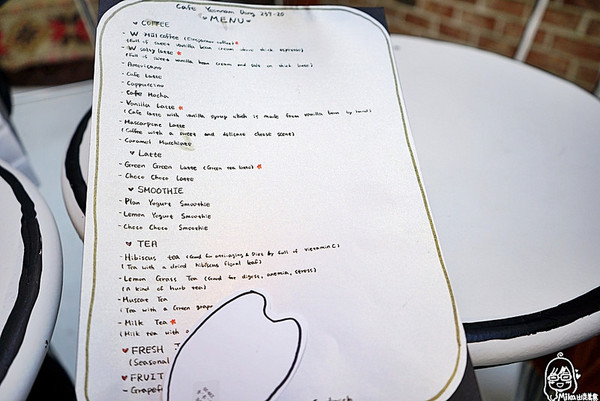 Cafe Yeonnam Dong 239-20
♥ MENU ♥
♥ COFFEE
- W Mill coffee (Einspanner coffee) *
(full of sweet vanilla bean cream above thick espresso)
- W salty latte *
(full of sweet vanilla bean cream and salt on that latte)
- Americano
- Cafe Latte
- Cappuccino
- Cafe Mocha
- Vanilla Latte *
(Cafe latte with vanilla syrup which is made from vanilla bean by hand)
- Mascarpone Latte
(Coffee with a sweet and delicate cheese scent)
- Caramel Macchiato
♥ Latte
- Green Green Latte (Green tea latte) *
- Choco Choco Latte
♥ SMOOTHIE
- Plan Yogurt Smoothie
- Lemon Yogurt Smoothie
- Choco Choco Smoothie
♥ TEA
- Hibiscus tea (Good for anti-aging & Diet by full of vietamin C)
(Tea with a dried hibiscus floral leaf)
- Lemon Grass Tea (Good for digest, anemia, stress)
(A kind of hurb tea)
- Muscat Tea
(Tea with a Green grape
- Milk Tea *
(Milk tea with
♥ FRESH
(Seasonal
♥ FRUIT
- Grapef
Sandwich
Mika出走美食